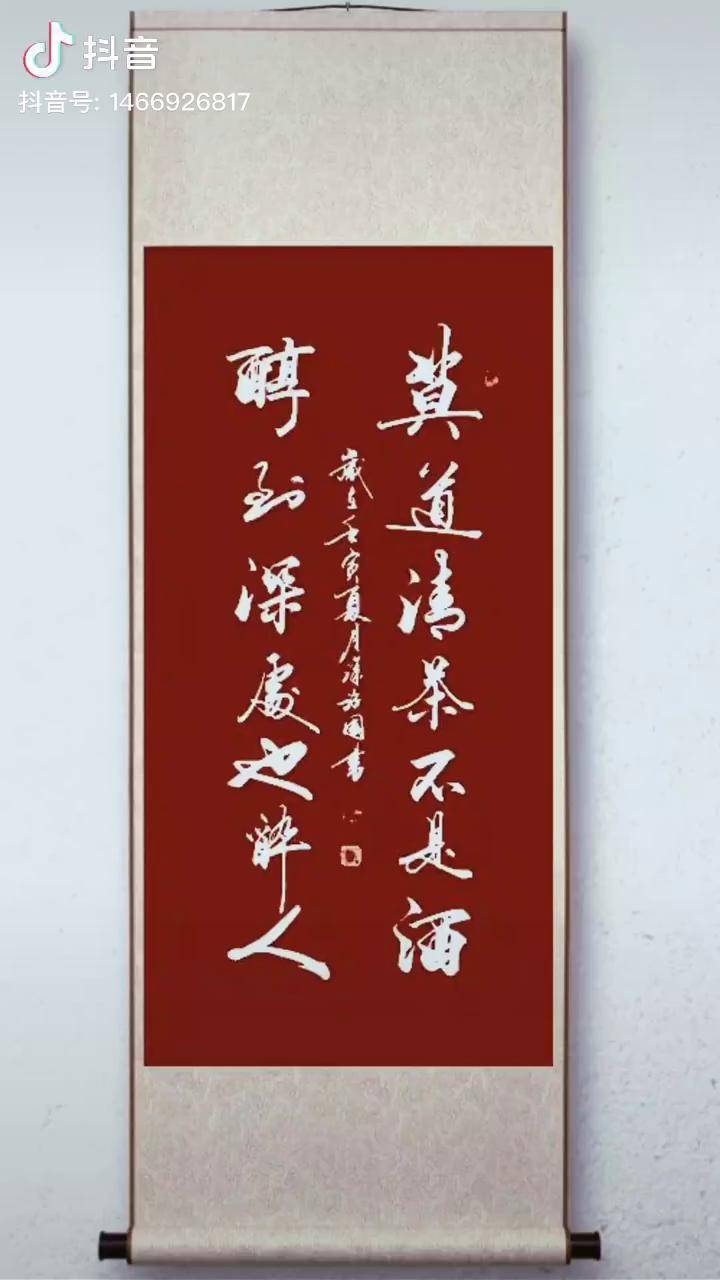 抖音
抖音号: 1466926817
莫道清茶不是酒
到深處也醉人
歲在壬寅夏月國書